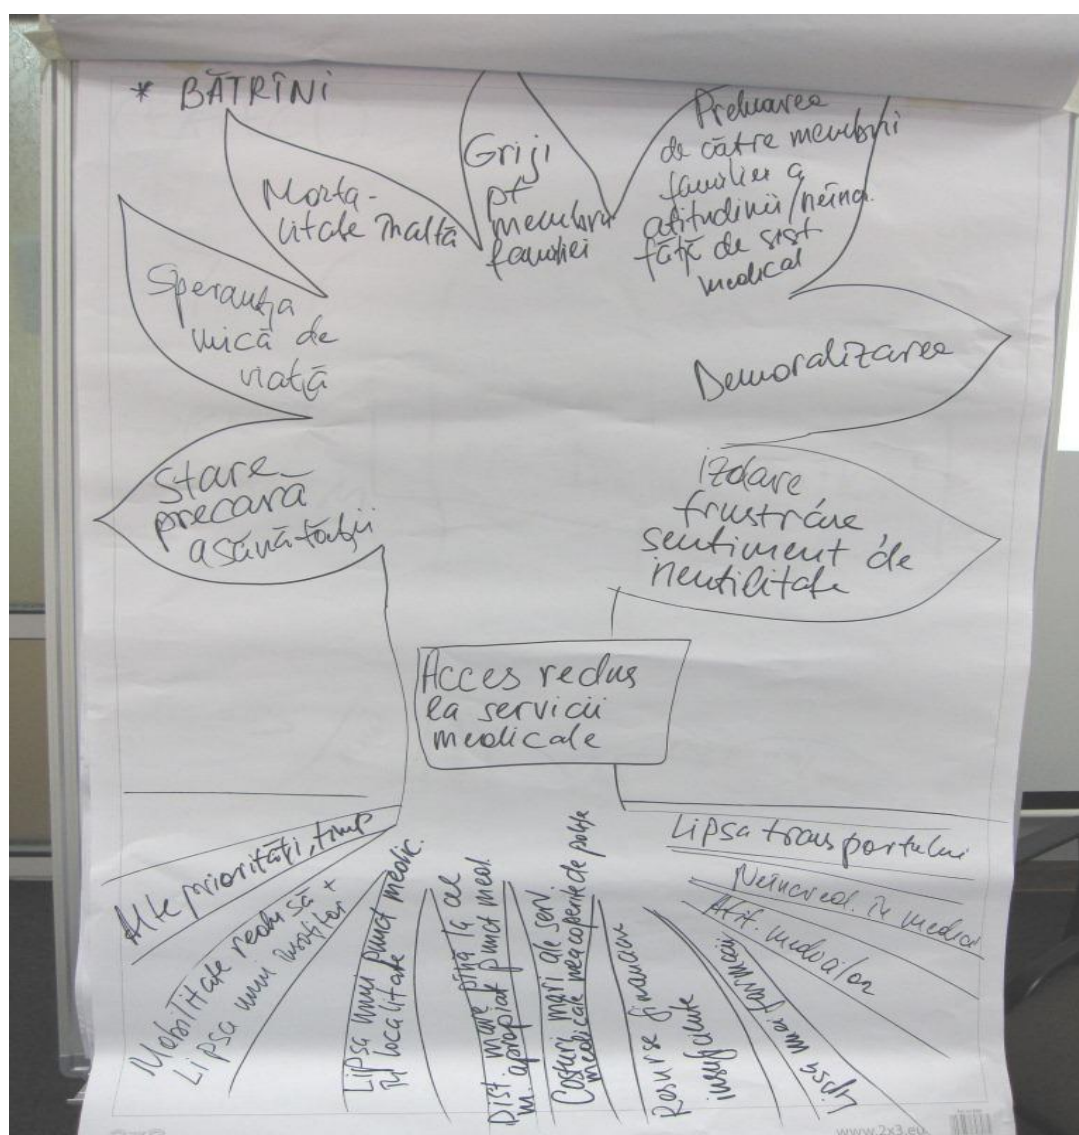 * BĂTRÎNI
Morta-
litate înaltă
Griji
pt
membrii
familiei
Preluarea
de către membrii
familiei a
atitudinii/neîncr.
față de sist
medical
Speranța
mică de
viață
Demoralizarea
Stare
precara
a sănătății
izolare
frustrare
sentiment de
neutilitate
Acces redus
la servicii
medicale
Alte priorități, timp
Mobilitate redusă +
Lipsa unui însoțitor
Lipsa unui punct medic.
în localitate
Dist. mare pînă la cel
m. apropiat punct med.
Costuri mari ale serv.
medicale neacoperite de polițe
Resurse financiare
insuficiente
Lipsa unei farmacii
Atit. medicilor
Neîncred. în medici
Lipsa transportului
www.2x3.eu